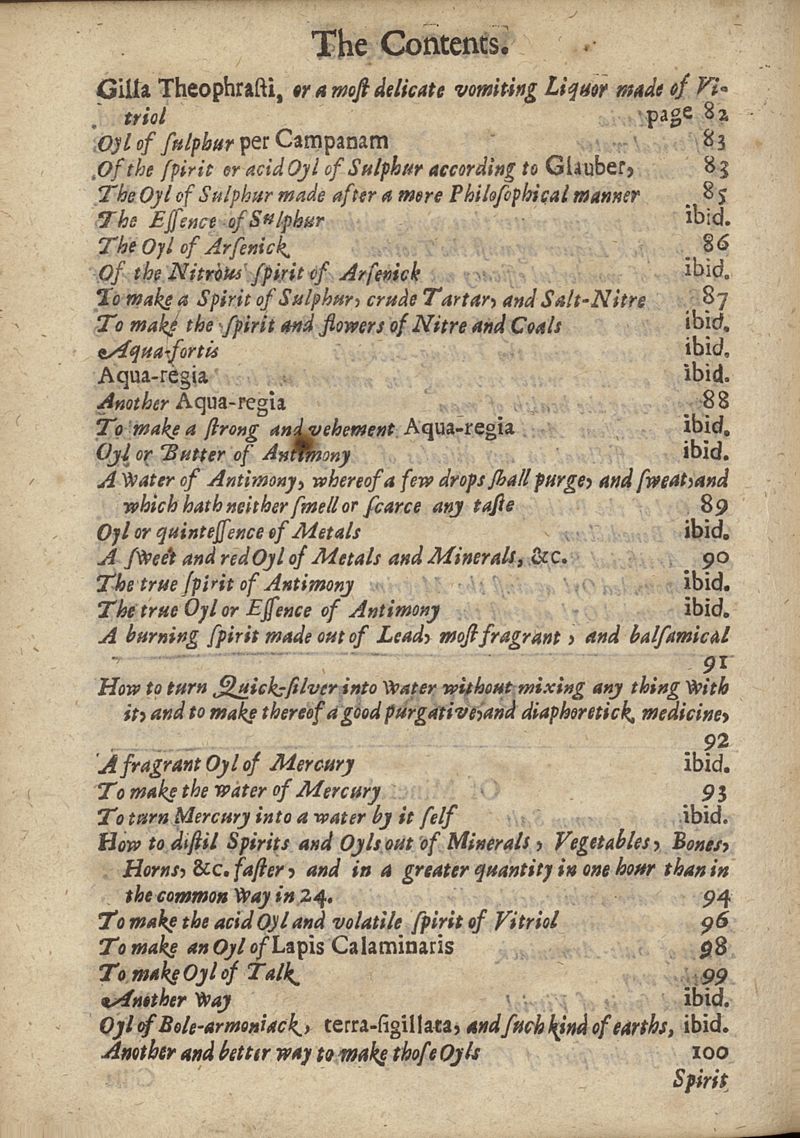 The Contents.
Gilla Theophraſti, or a moſt delicate vomiting Liquor made of Vi-
triol page 82
Oyl of ſulphur per Campanam 83
Of the ſpirit or acid Oyl of Sulphur according to Glauber, 83
The Oyl of Sulphur made after a more Philoſophical manner 85
The Eſſence of Sulphur ibid.
The Oyl of Arſenick 86
Of the Nitrous ſpirit of Arſenick ibid.
To make a Spirit of Sulphur, crude Tartar, and Salt-Nitre 87
To make the ſpirit and flowers of Nitre and Coals ibid.
Aqua-fortis ibid.
Aqua-regia ibid.
Another Aqua-regia 88
To make a ſtrong and vehement Aqua-regia ibid.
Oyl or Butter of Antimony ibid.
A Water of Antimony, whereof a few drops ſhall purge, and ſweat, and
which hath neither ſmell or ſcarce any taſte 89
Oyl or quinteſſence of Metals ibid.
A ſweet and red Oyl of Metals and Minerals, &c. 90
The true ſpirit of Antimony ibid.
The true Oyl or Eſſence of Antimony ibid.
A burning ſpirit made out of Lead, moſt fragrant, and balſamical
91
How to turn Quick-ſilver into Water without mixing any thing with
it, and to make thereof a good purgative, and diaphoretick medicine,
92
A fragrant Oyl of Mercury ibid.
To make the water of Mercury 93
To turn Mercury into a water by it ſelf ibid.
How to diſtil Spirits and Oyls out of Minerals, Vegetables, Bones,
Horns, &c. faſter, and in a greater quantity in one hour than in
the common Way in 24. 94
To make the acid Oyl and volatile ſpirit of Vitriol 96
To make an Oyl of Lapis Calaminaris 98
To make Oyl of Talk 99
Another Way ibid.
Oyl of Bole-armoniack, terra-ſigillata, and ſuch kind of earths, ibid.
Another and better way to make thoſe Oyls 100
Spirit